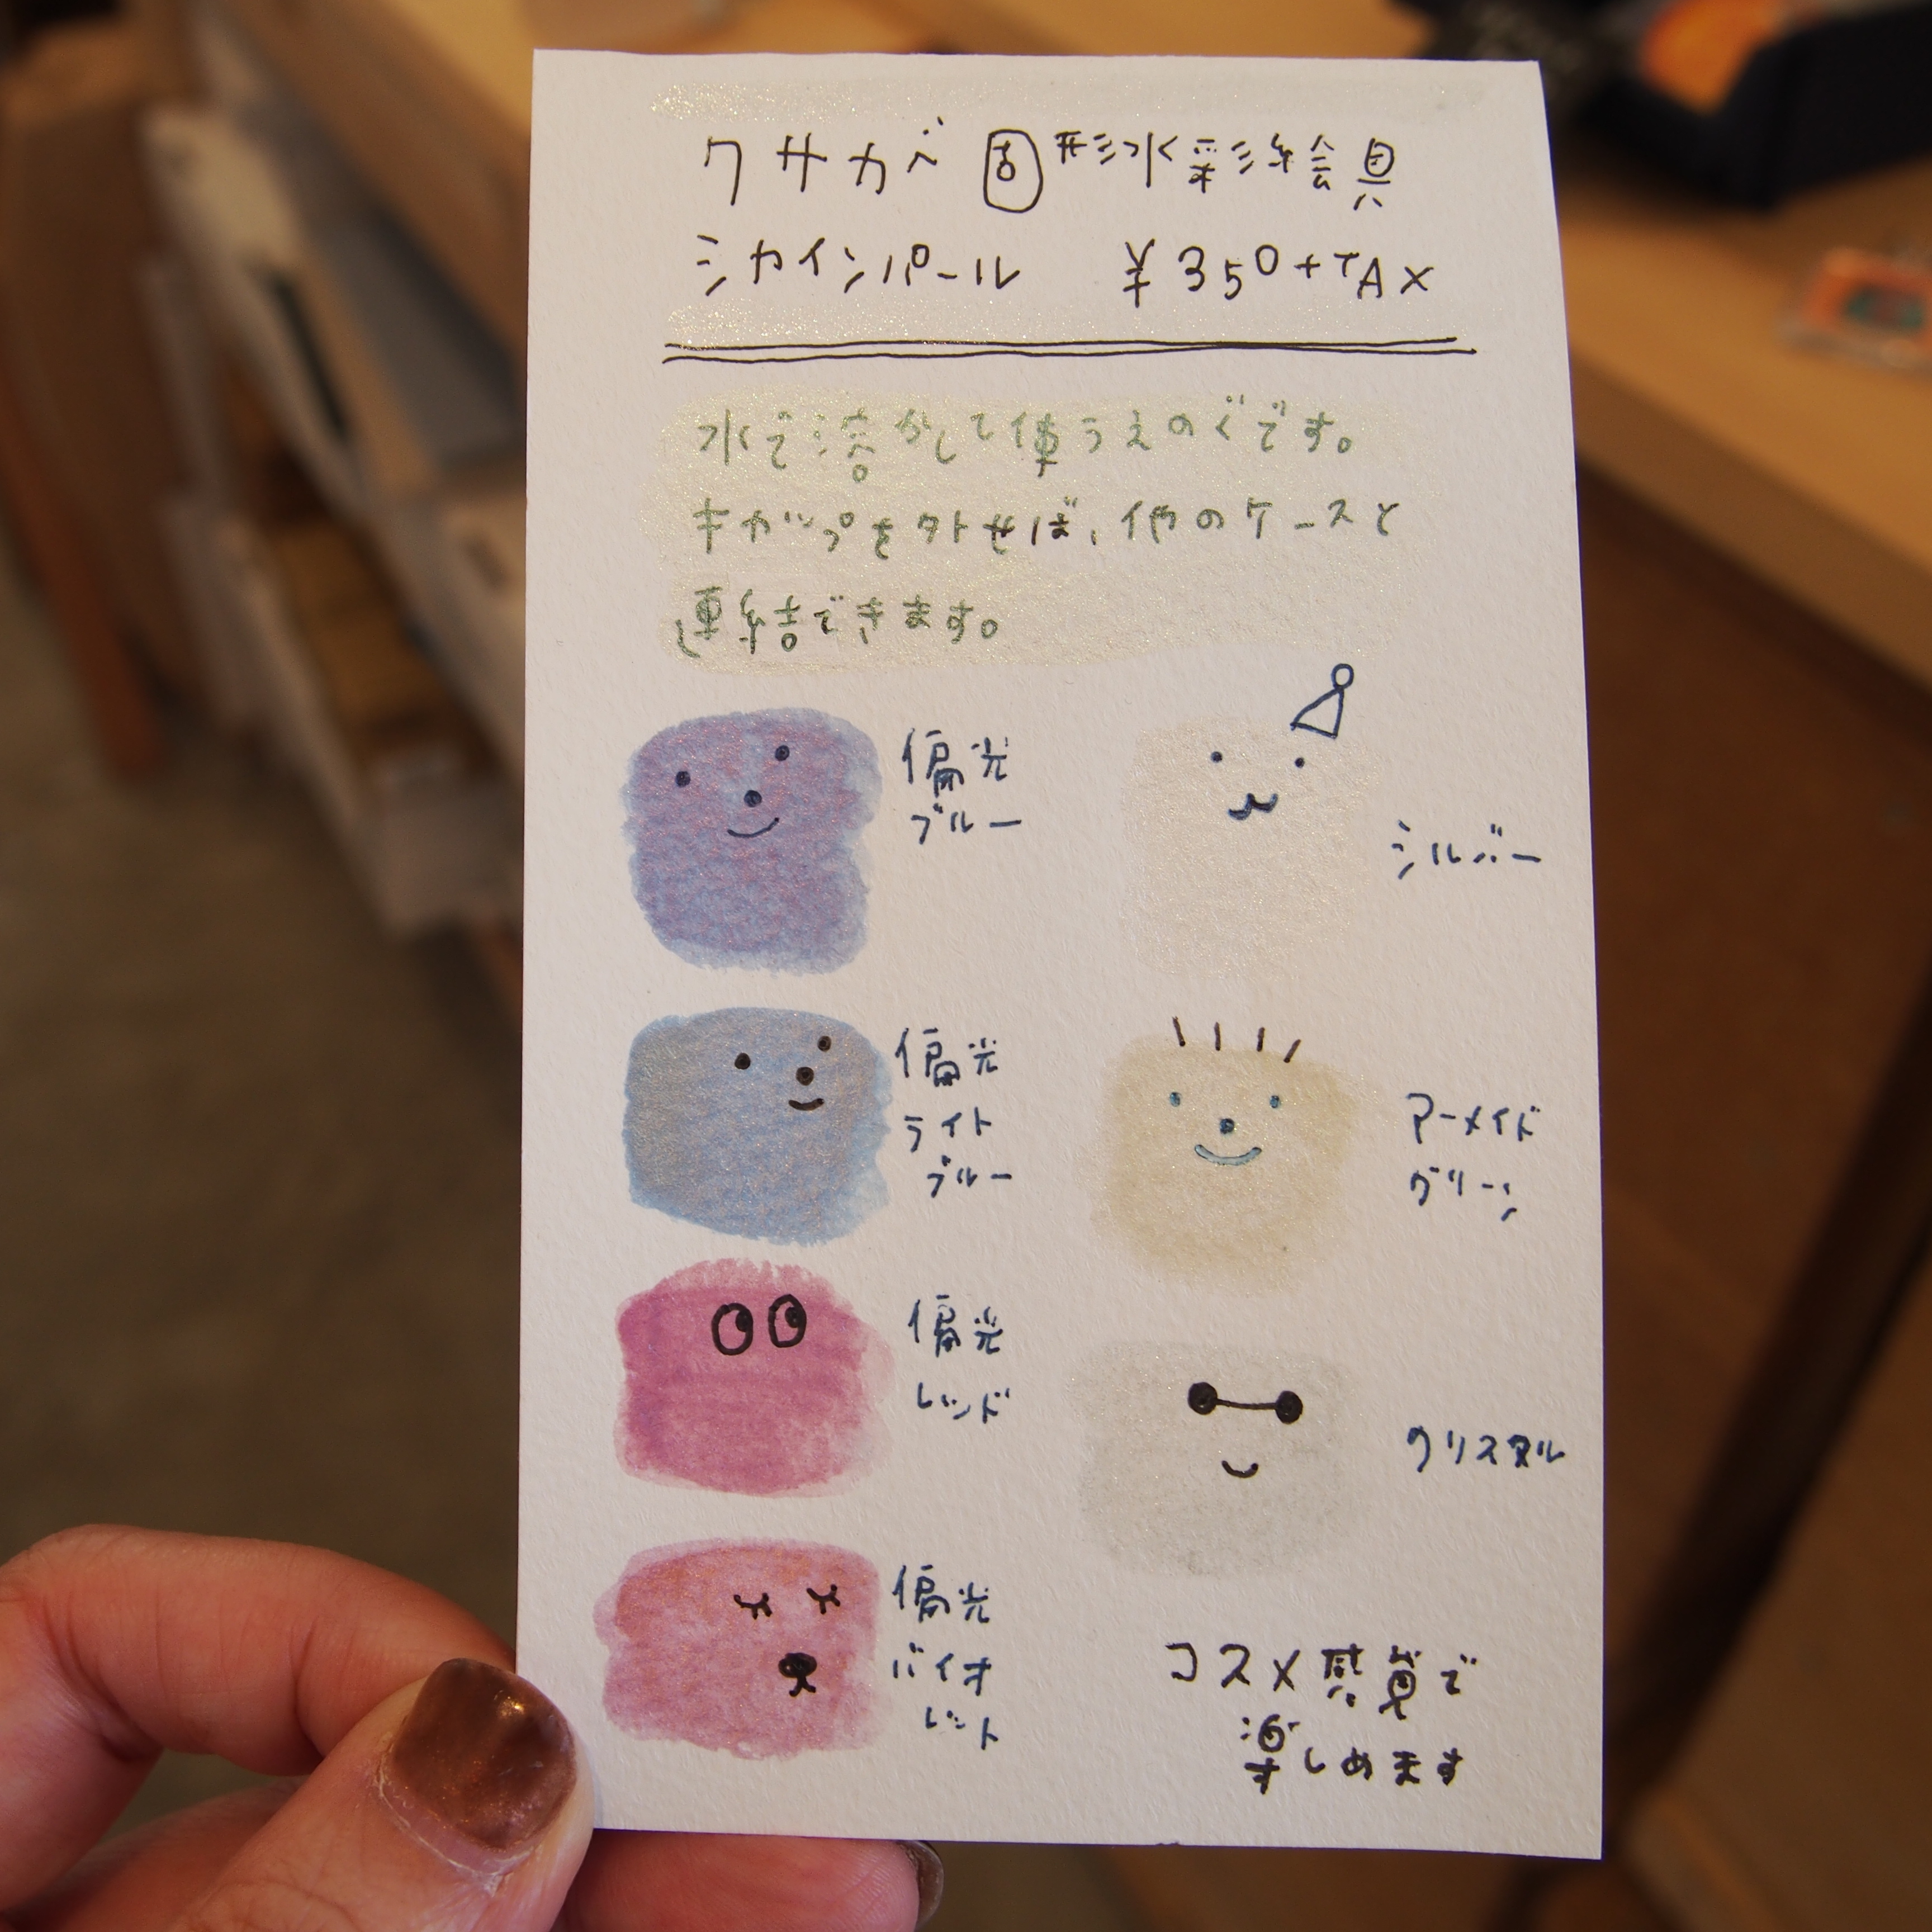 クサカベ 固形水彩絵具
シカインパール ¥350+TAX
水で溶かして使うえのぐです。
キャップを外せば、他のケースと
連結できます。
偏光
ブルー
シルバー
偏光
ライト
ブルー
アーメイド
グリーン
偏光
レッド
クリスタル
偏光
バイオ
レット
コスメ感覚で
楽しめます